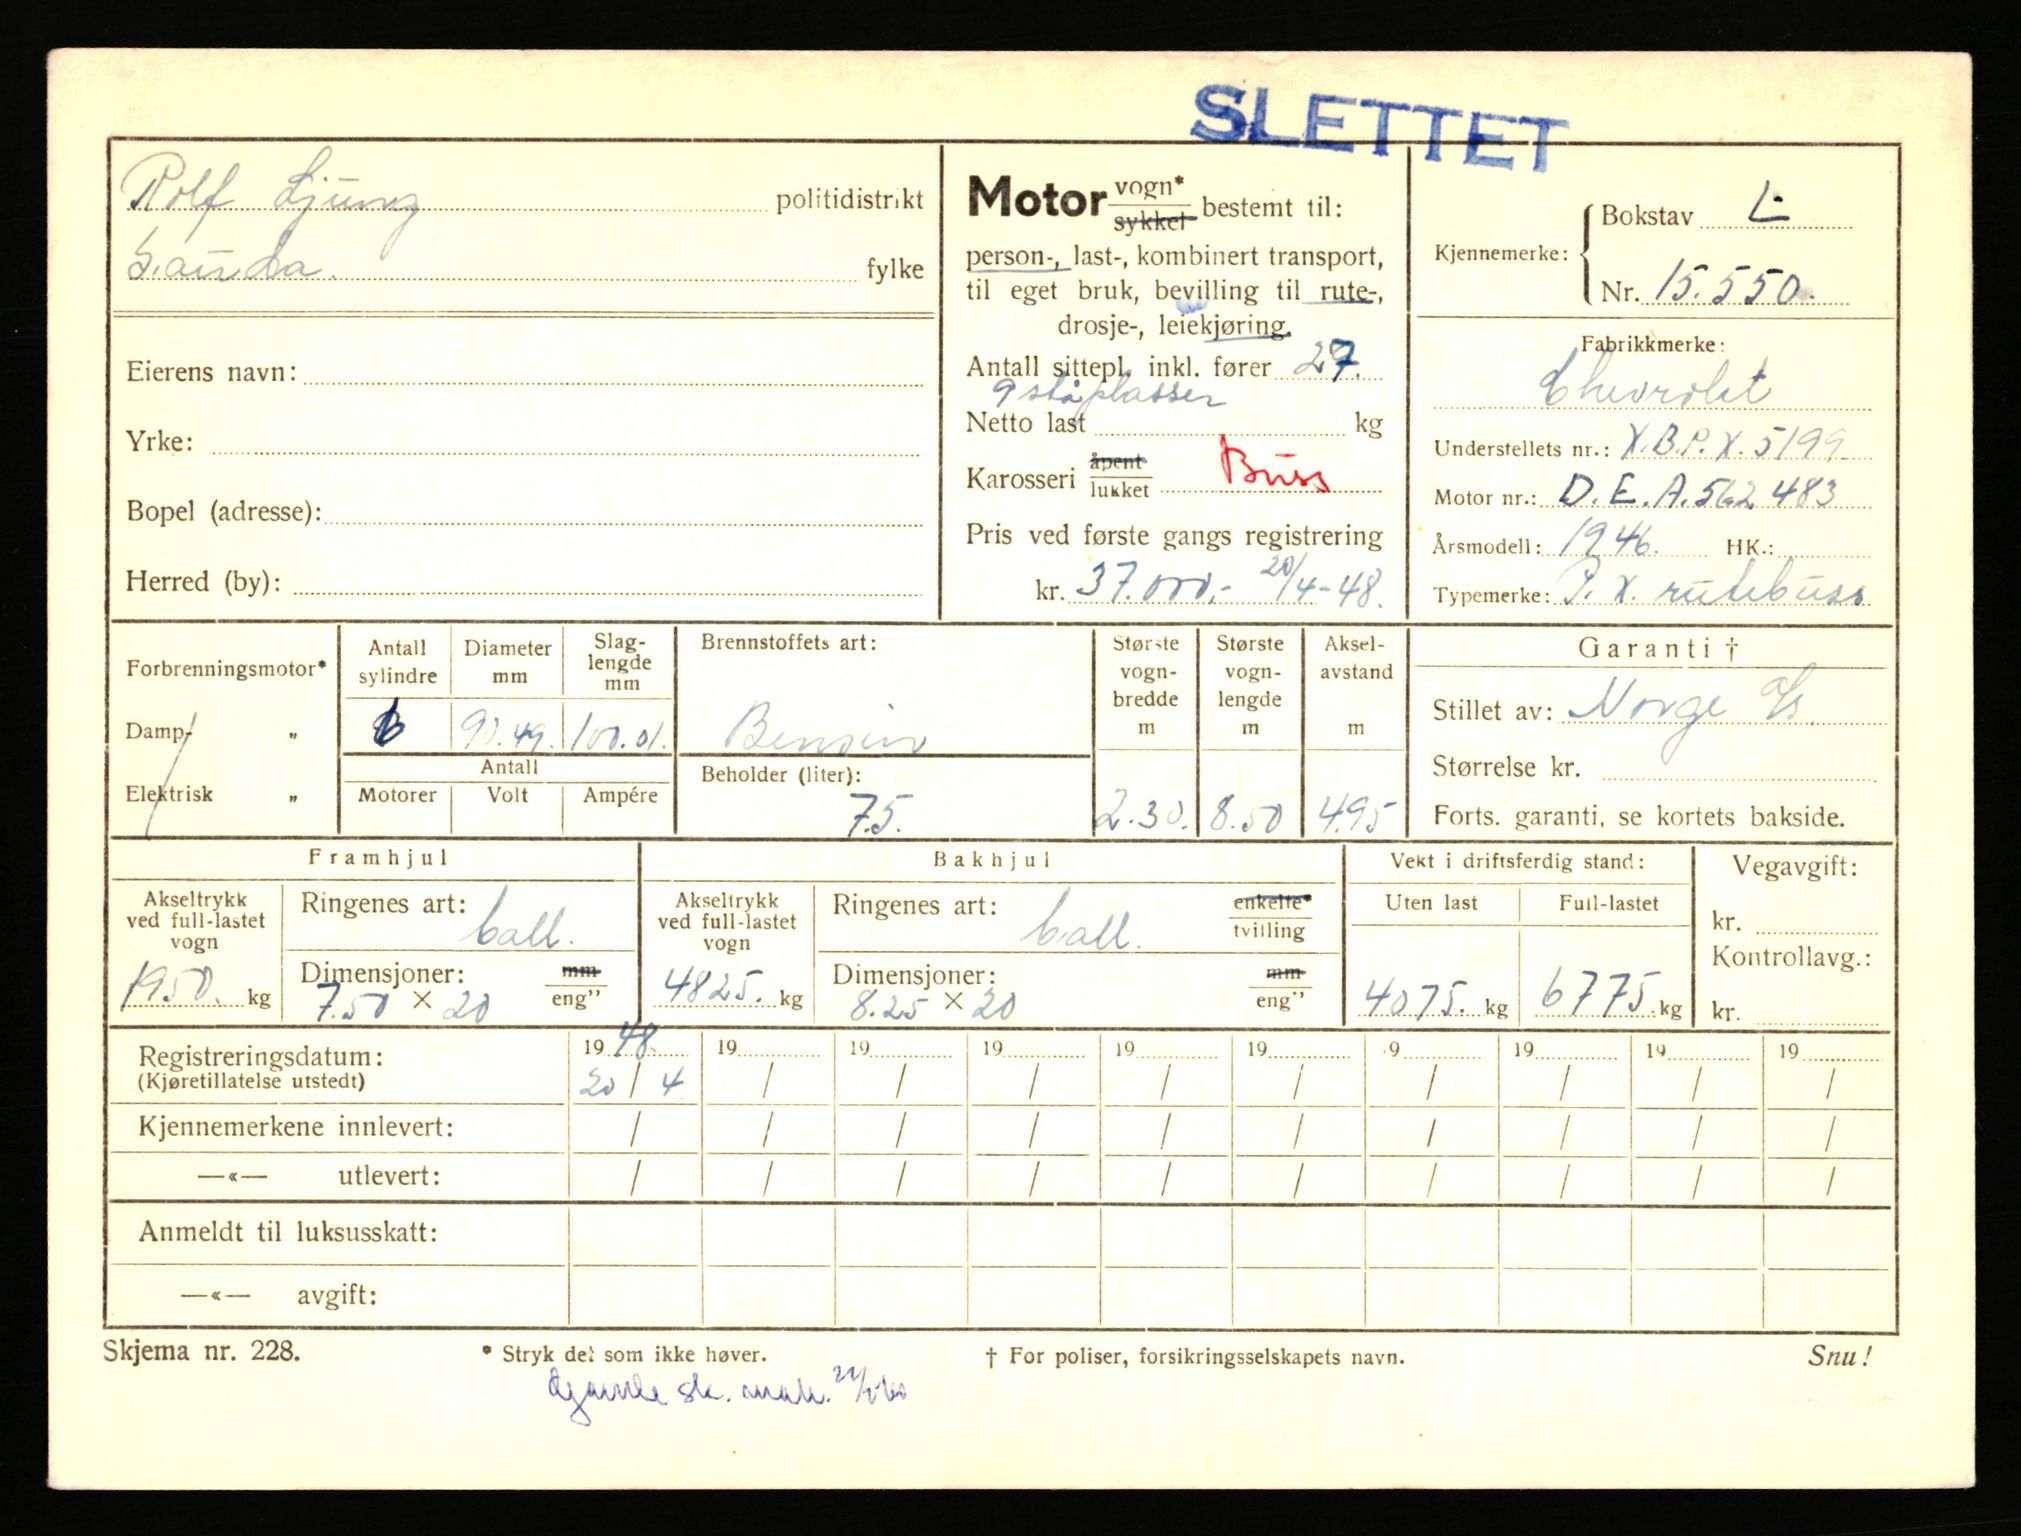 SLETTET
Rolf Ljung politidistrikt
Sauda. fylke
Eierens navn:
Yrke:
Bopel (adresse):
Herred (by):
Motor vogn* sykkel bestemt til:
person-, last-, kombinert transport,
til eget bruk, bevilling til rute-,
drosje-, leiekjøring.
Antall sittepl. inkl. fører 27.
9 ståplasser
Netto last kg
Karosseri åpent lukket Buss
Pris ved første gangs registrering
kr. 37.000,- 20/4-48.
Kjennemerke: Bokstav L.
Nr. 15.550.
Fabrikkmerke:
Chevrolet
Understellets nr.: X.B.P.X.5199
Motor nr.: D.E.A.562483
Årsmodell: 1946. HK.:
Typemerke: P.X. rutebuss
Forbrenningsmotor*
Damp- „
Elektrisk „
Antall sylindre Diameter mm Slaglengde mm
6 90.49. 100.01.
Antall
Motorer Volt Ampére
Brennstoffets art:
Bensin
Beholder (liter):
75.
Største vogn-bredde m Største vogn-lengde m Aksel-avstand m
2.30. 8.50 4.95
Garanti †
Stillet av: Norge A/s.
Størrelse kr.
Forts. garanti, se kortets bakside.
Framhjul
Akseltrykk ved full-lastet vogn
1950. kg
Ringenes art: ball.
Dimensjoner: mm eng"
7.50 × 20
Bakhjul
Akseltrykk ved full-lastet vogn
4825. kg
Ringenes art: ball. enkelte* tvilling
Dimensjoner: mm eng"
8.25 × 20
Vekt i driftsferdig stand:
Uten last Full-lastet
4075. kg 6775. kg
Vegavgift:
kr.
Kontrollavg.:
kr.
Registreringsdatum: 19 48. 19 19 19 19 19 19 19 19 19
(Kjøretillatelse utstedt) 20 / 4 / / / / / / / / /
Kjennemerkene innlevert: / / / / / / / / / /
—«— utlevert: / / / / / / / / / /
Anmeldt til luksusskatt:
—«— avgift:
Skjema nr. 228. * Stryk det som ikke høver. † For poliser, forsikringsselskapets navn. Snu!